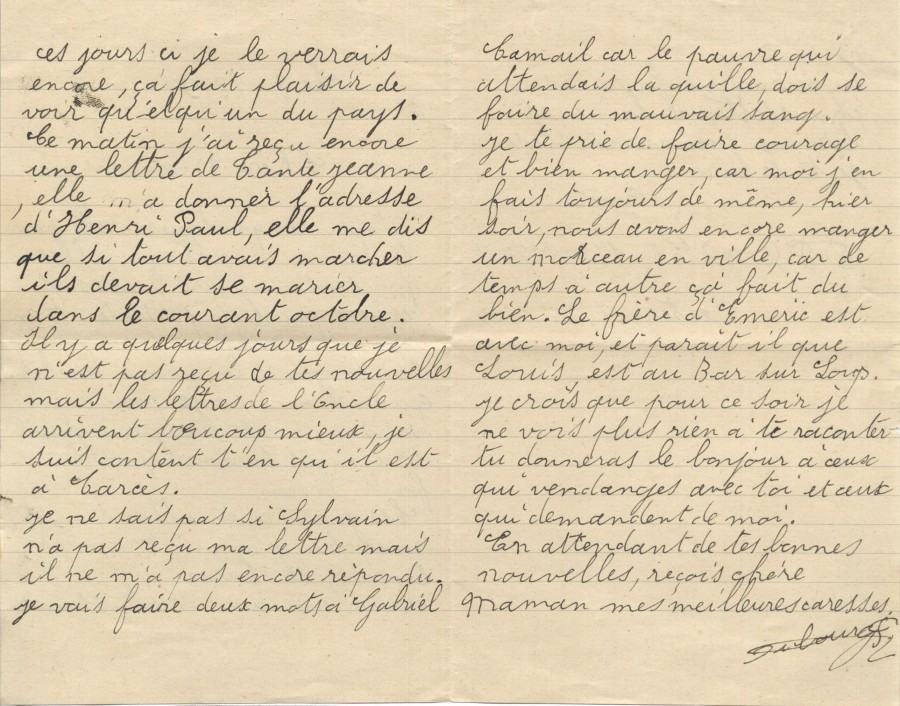 ces jours ci je le verrais
encore, çà fait plaisir de
voir qu'elqu'un du pays.
Ce matin j'ai reçu encore
une lettre de Tante Jeanne
, elle m'a donner l'adresse
d'Henri Paul, elle me dis
que si tout avais marcher
ils devait se marier
dans le courant octobre.
Il y a quelques jours que je
n'est pas reçu de tes nouvelles
mais les lettres de l'Oncle
arrivent boucoup mieux, je
suis content t'en qu'il est
à Carcès.
Je ne sais pas si Sylvain
n'a pas reçu ma lettre mais
il ne m'a pas encore répondu.
Je vais faire deux mots à Gabriel
Camail car le pauvre qui
attendais la quille, dois se
faire du mauvais sang.
Je te prie de faire courage
et bien manger, car moi j'en
fais toujours de même, hier
soir, nous avons encore manger
un morceau en ville, car de
temps à autre çà fait du
bien. Le frère d'Emeric est
avec moi, et paraît il que
Louis, est au Bar sur Loup.
Je crois que pour ce soir je
ne vois plus rien à te raconter
tu donneras le bonjour à ceux
qui vendanges avec toi et ceux
qui demandent de moi.
En attendant de tes bonnes
nouvelles, reçois chère
Maman mes meilleures caresses.